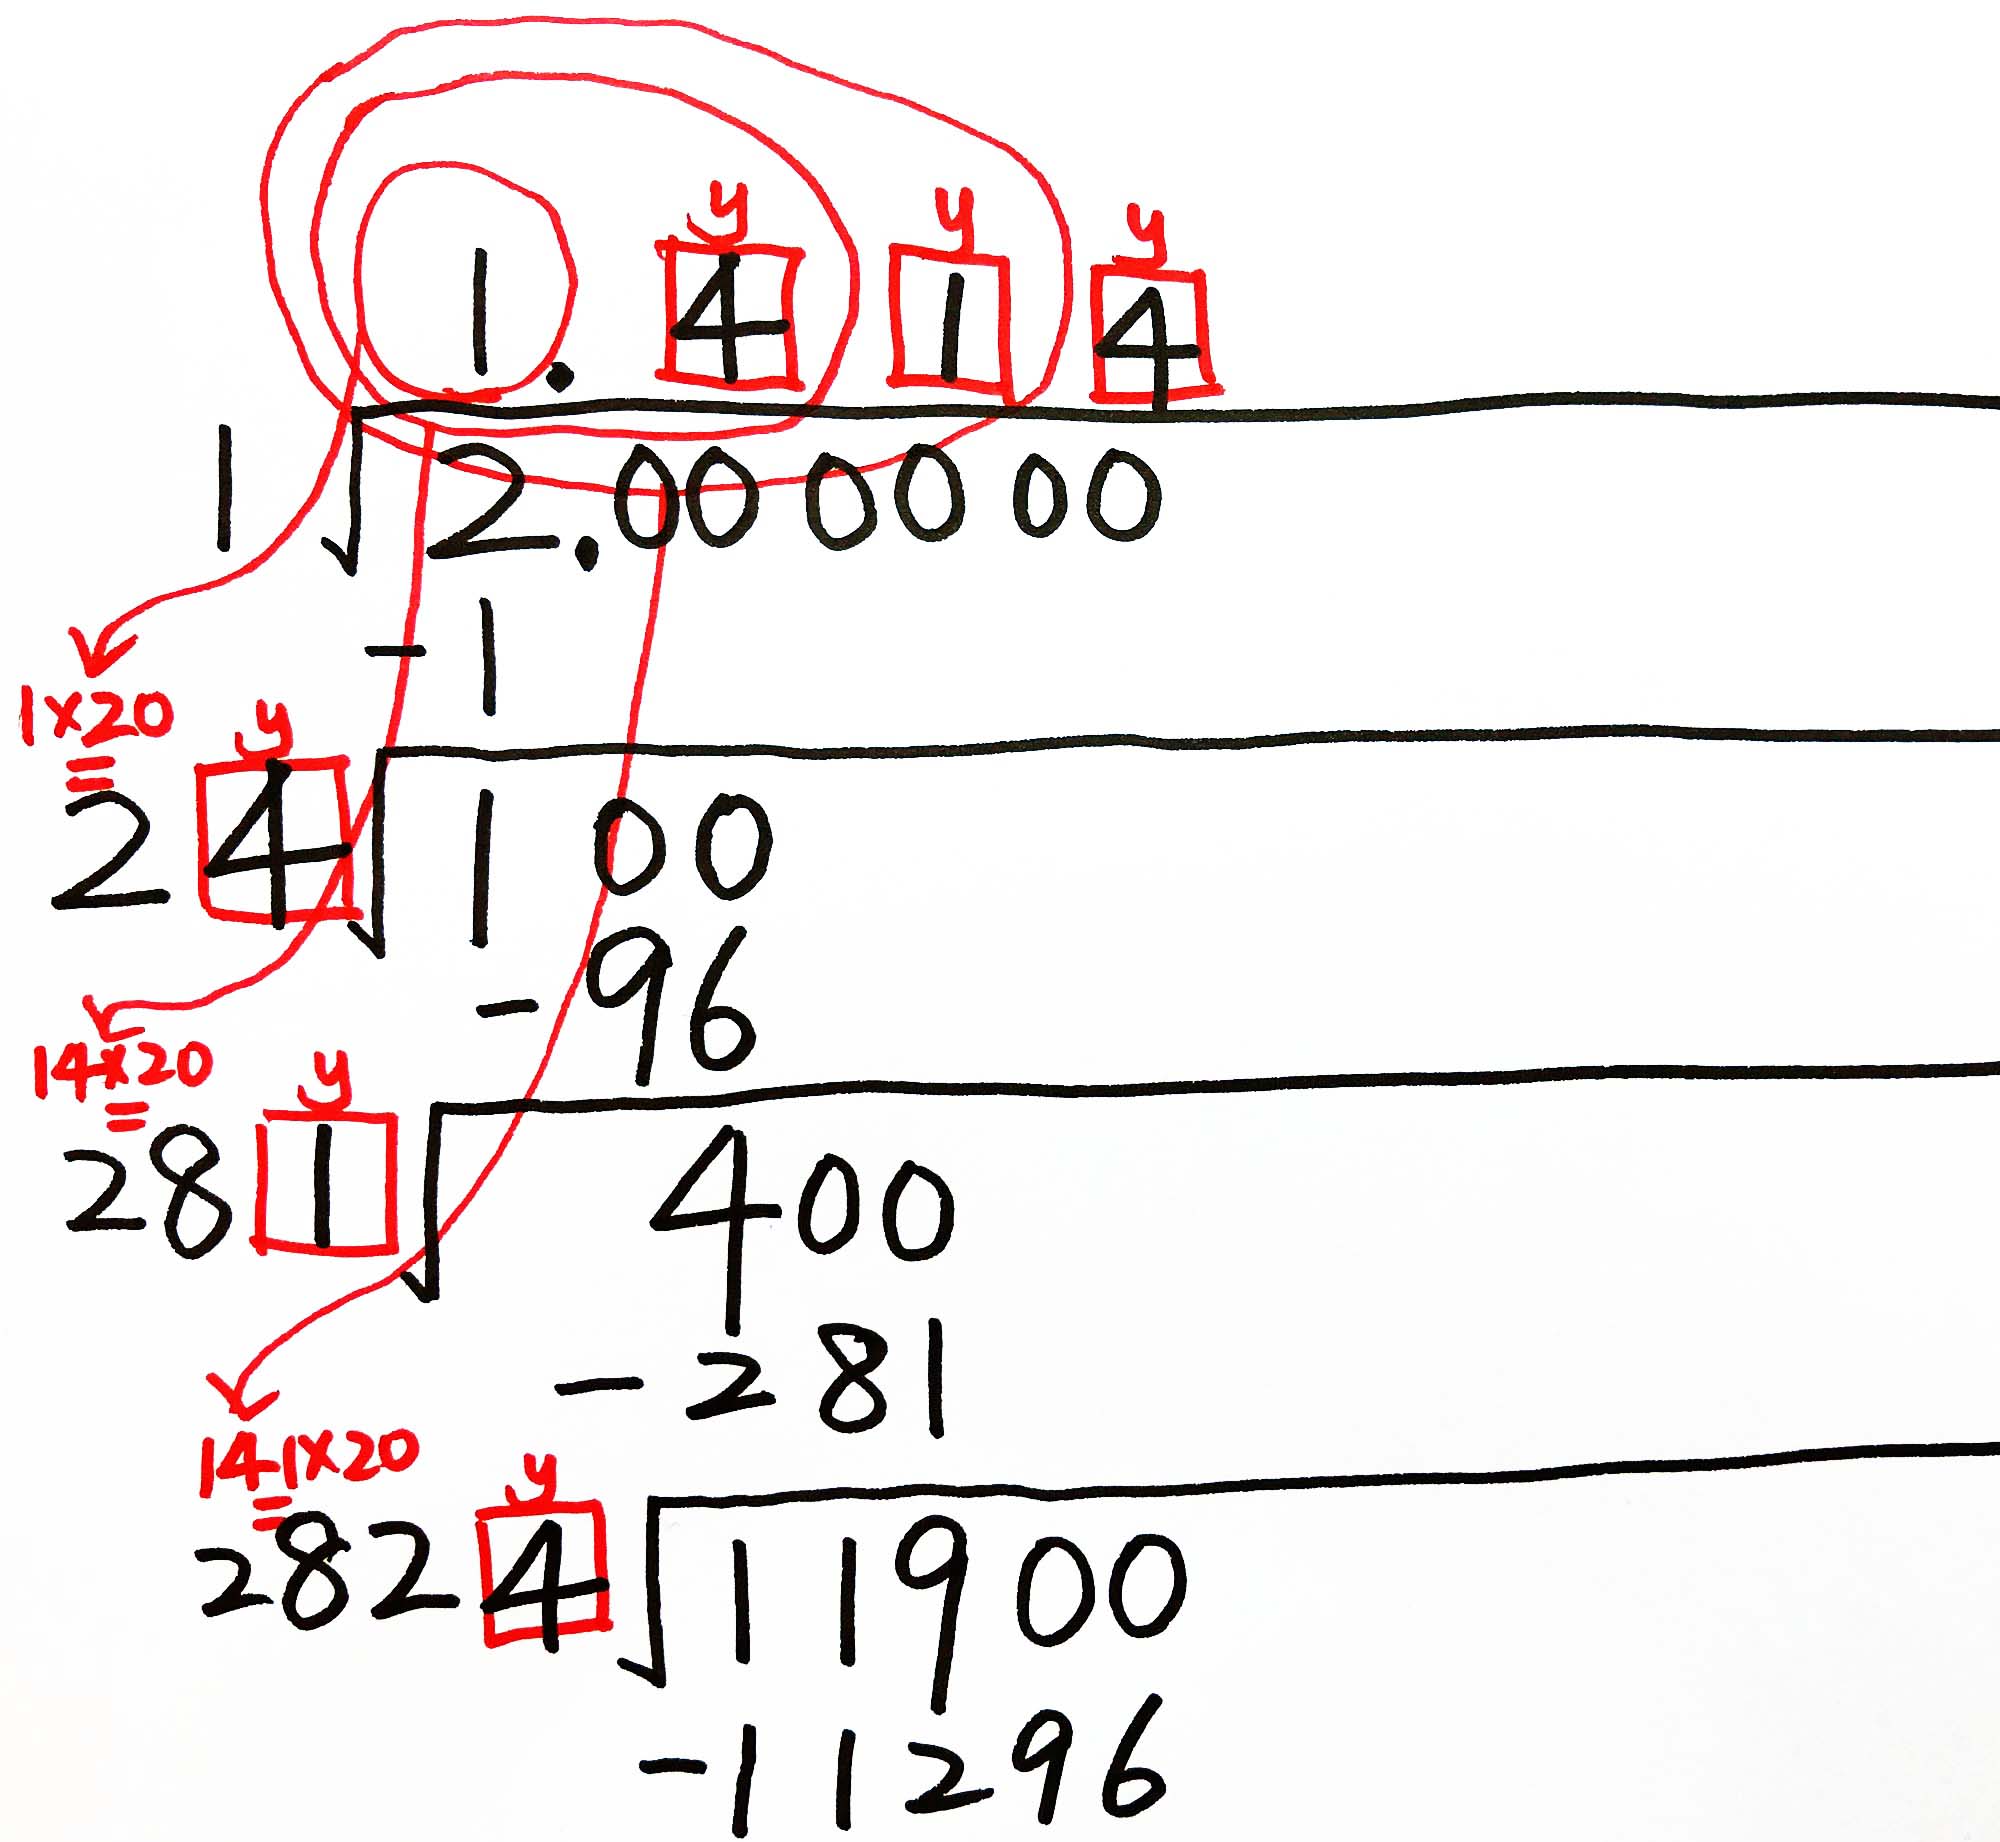 y y y
1. 4 1 4
1 √2.00 00 00
- 1
1×20 y
=
2 4 √1 00
- 96
14×20 y
=
28 1 √400
- 281
141×20 y
=
282 4 √11900
- 11296